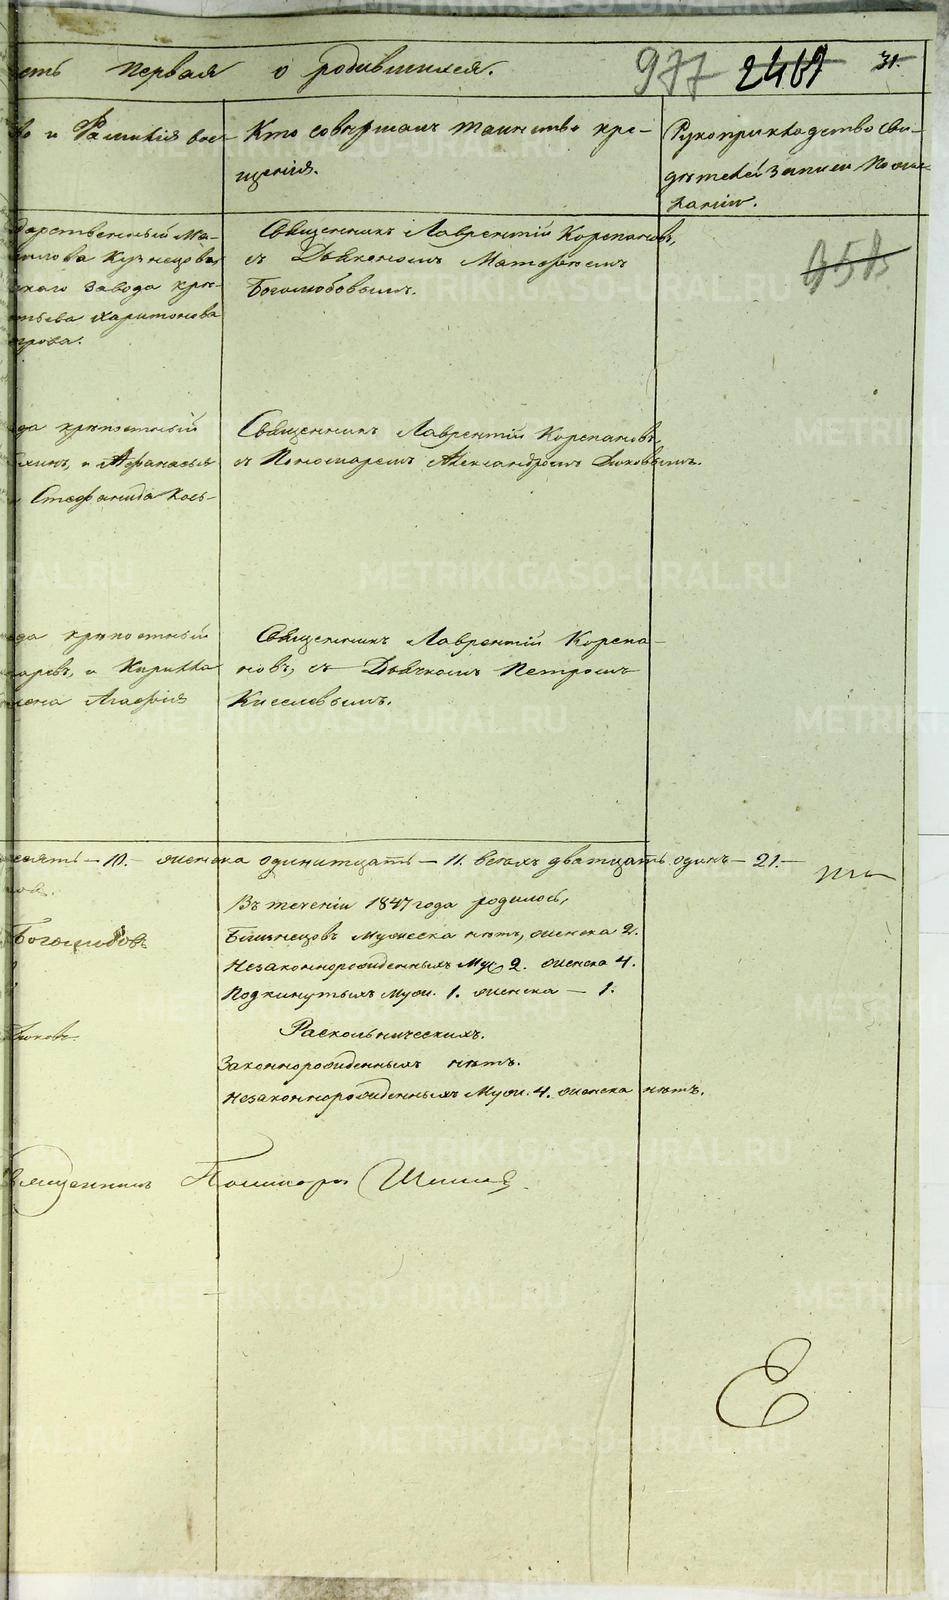 есть первая о родившихся. 977 2461 31.
во и Фамилия вос-
Кто совершалъ таинство кре-
щенія.
Рукоприкладство сви-
дѣтелей записи по же-
ланію.
958
дарственный Ма-
илова Кузнецова
скаго завода крѣ-
тьева Харитонова
трова.
Священникъ Лаврентій Корепановъ,
съ Діакономъ Матѳѣемъ
Боголюбовымъ.
да крѣпостный
хинъ, и Аѳанасья
Стефанида Козь-
Священникъ Лаврентій Корепановъ,
съ Пономаремъ Александромъ Диковымъ.
да крѣпостный
царевъ, и Кирилла
лена Агафія
Священникъ Лаврентій Корепа-
новъ, съ Дьячкомъ Петромъ
Киселевымъ.
десять - 10. - женска одинитцать - 11. всѣхъ дватцать одинъ - 21. -
Въ теченіи 1847 года родилось,
Близнецовъ мужеска нѣтъ, женска 2.
Незаконнорожденныхъ Муж. 2. женска 4.
Подкинутыхъ муж. 1. женска - 1.
Раскольническихъ.
Законнорожденныхъ нѣтъ.
Незаконнорожденныхъ Муж. 4. женска нѣтъ.
Боголюбовъ
Диковъ.
Священникъ
METRIKI.GASO-URAL.RU